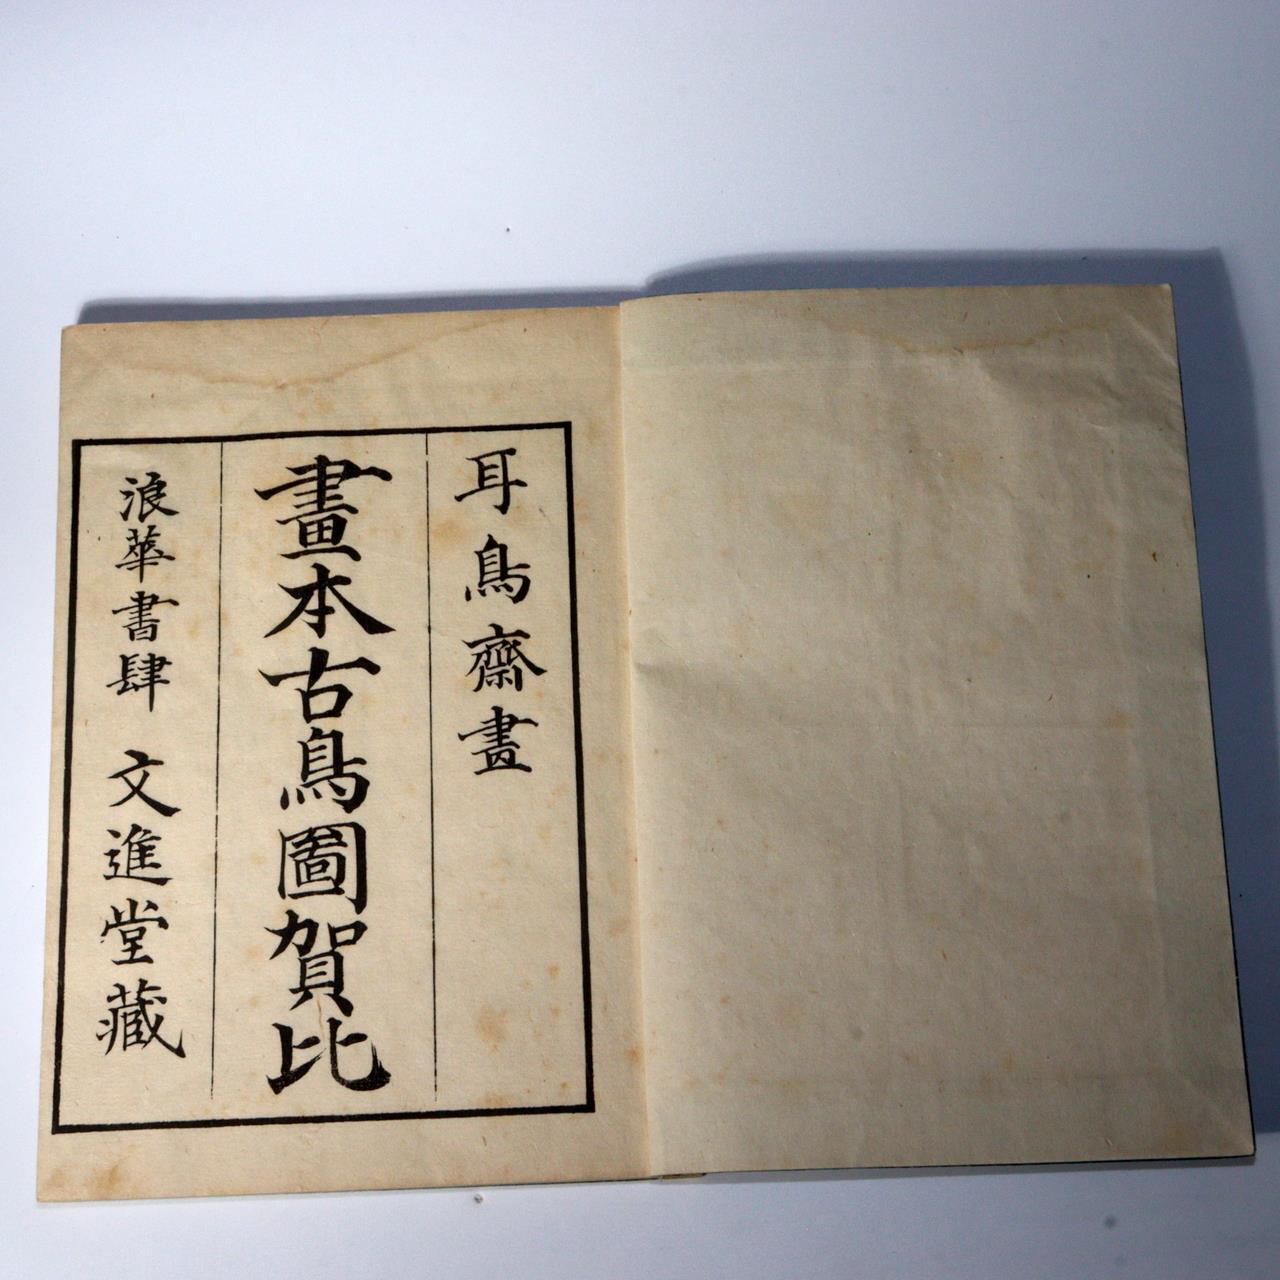 耳鳥齋畫
畫本古鳥圖賀比
浪華書肆 文進堂藏